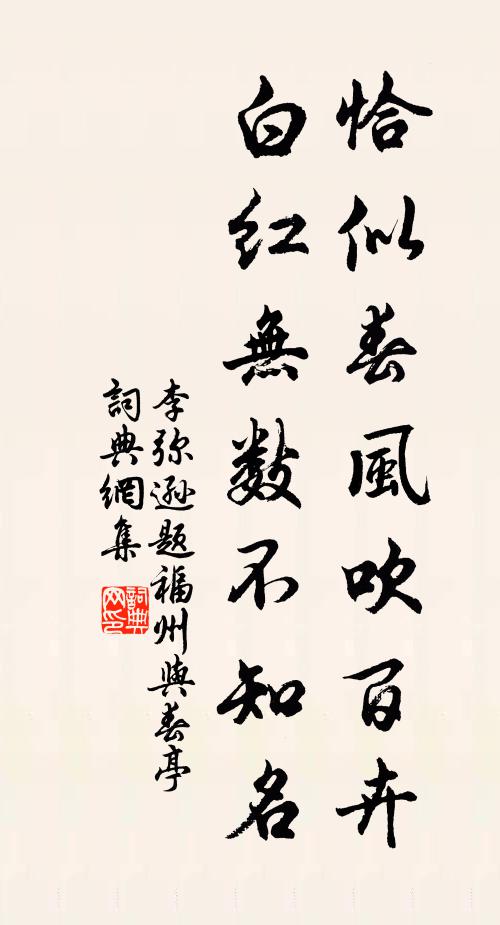 恰似春風吹百卉
白紅無数不知名
李弥遜题福州與春亭
詞典網集
詞典网印